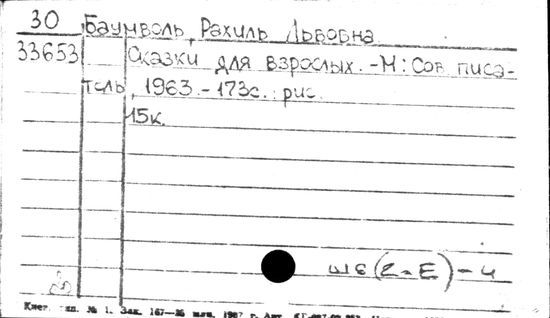 30 Баумволь, Рахиль Львовна
33653 Сказки для взрослых. -М: Сов писа-
тель, 1963. - 173с.: рис.
15к.
ШБ(2-Е)-4
№ 1. Зак. 167—